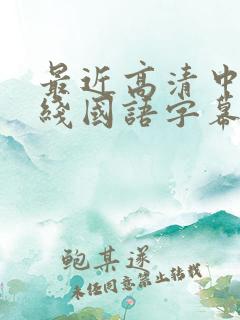 最近高清中
线國語字幕
鲍某遂
未经同意禁止转载